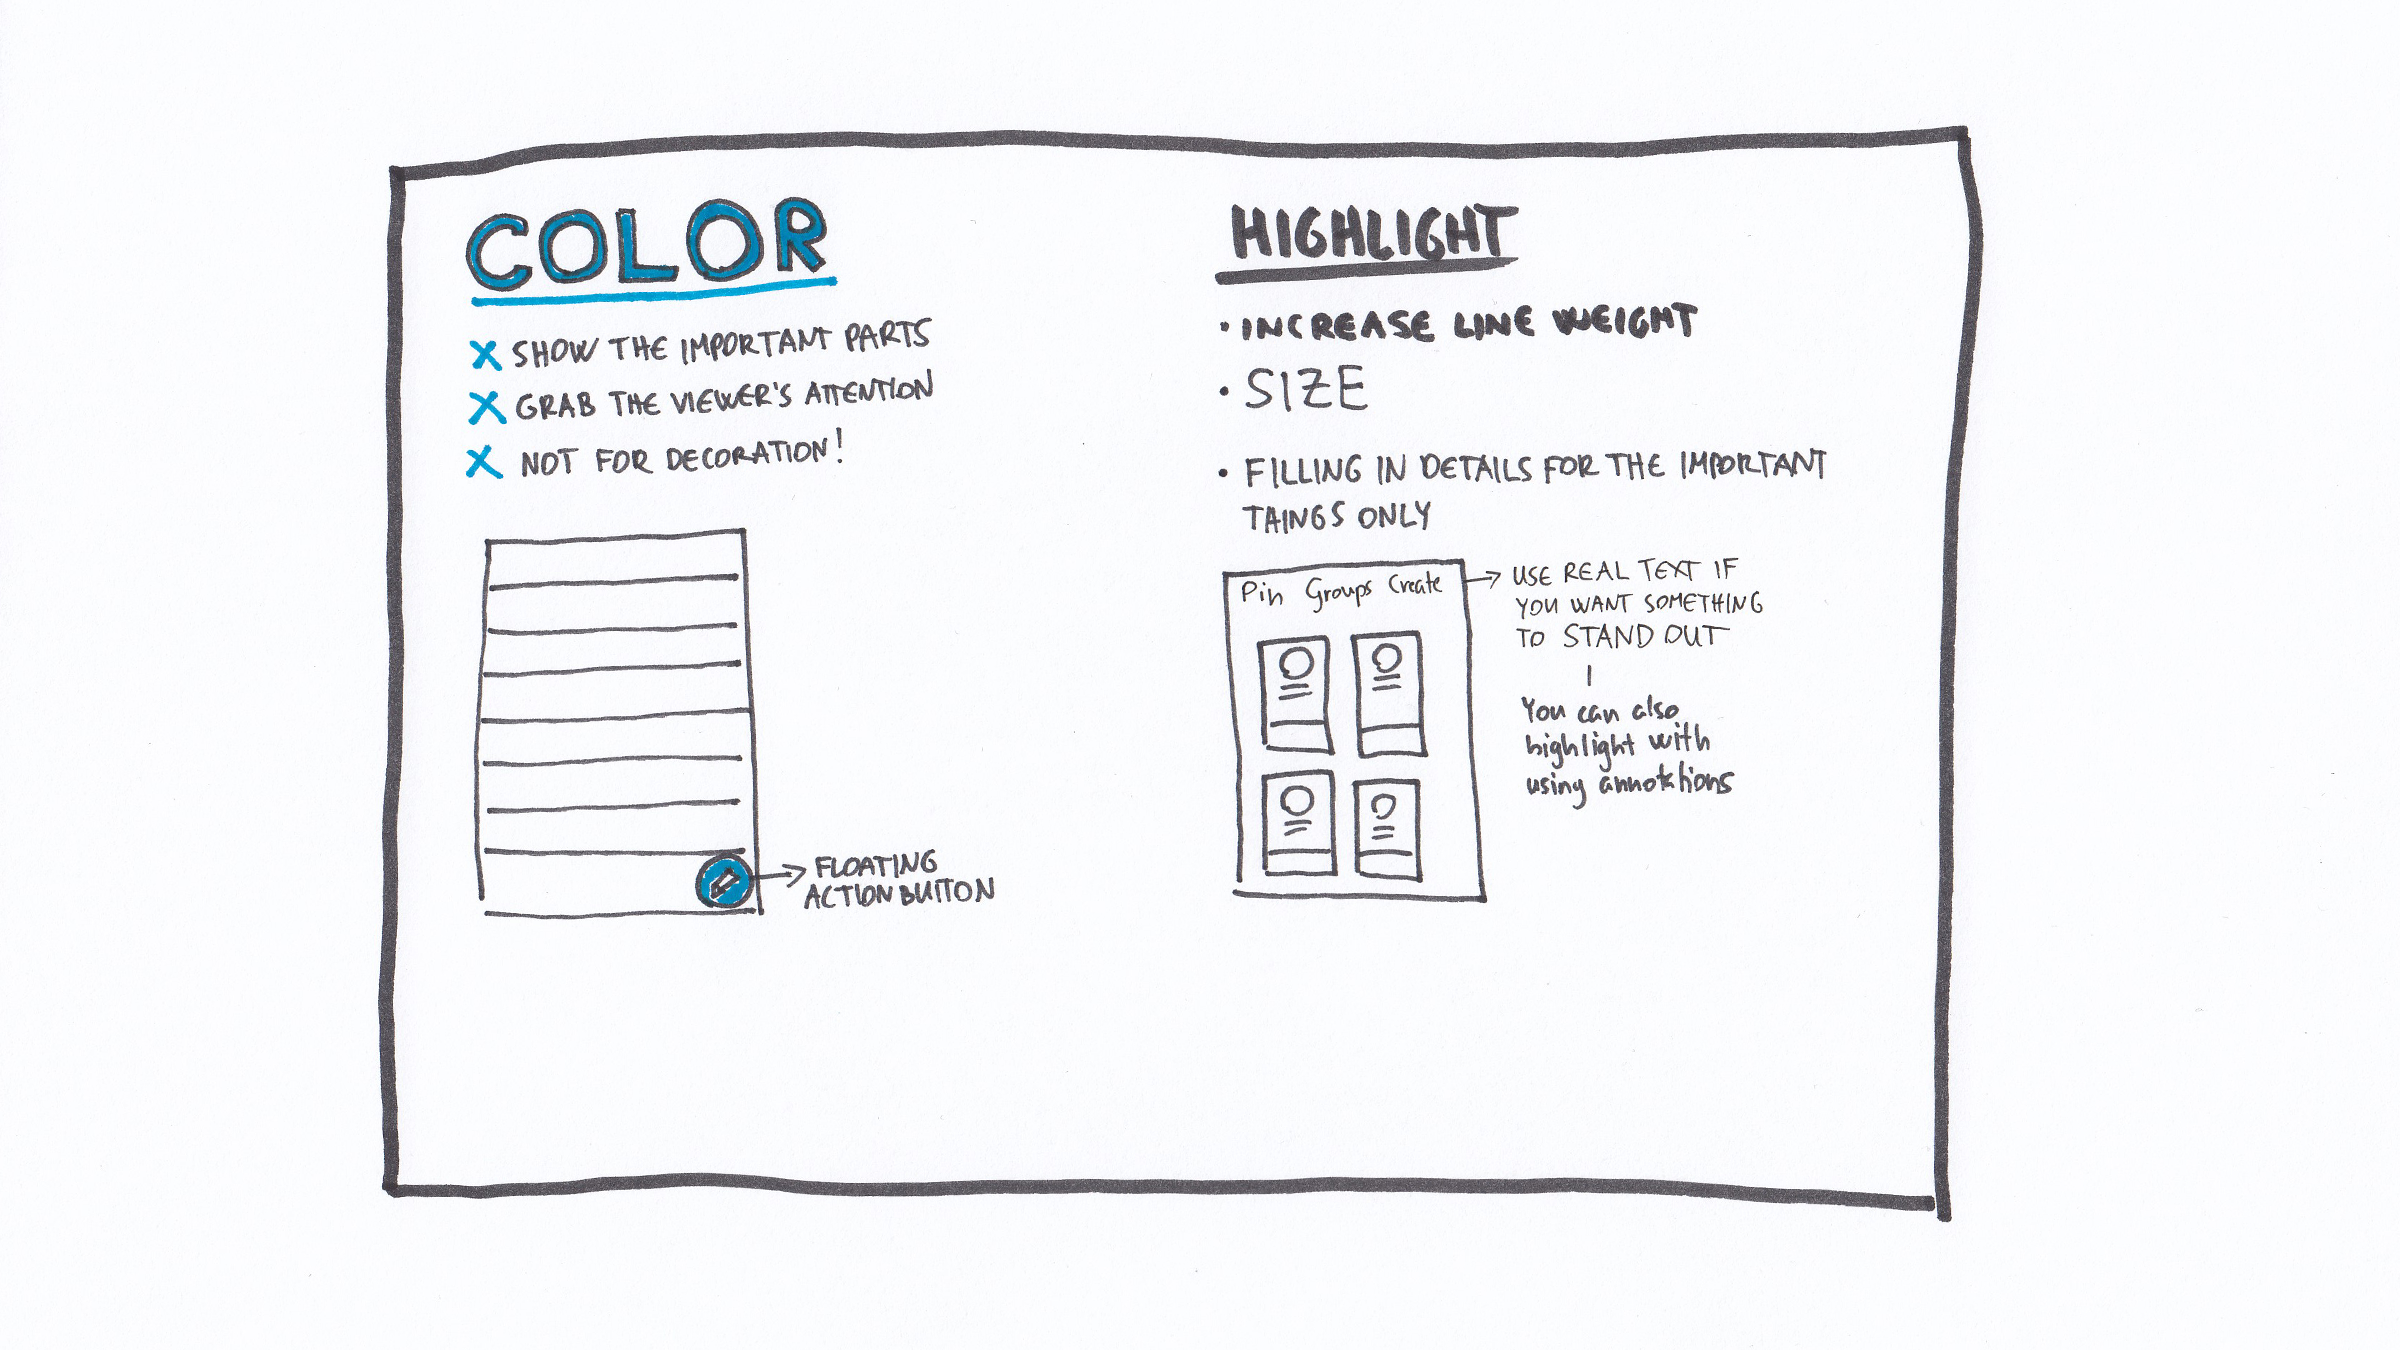 COLOR
X SHOW THE IMPORTANT PARTS
X GRAB THE VIEWER'S ATTENTION
X NOT FOR DECORATION!
FLOATING
ACTION BUTTON
HIGHLIGHT
• INCREASE LINE WEIGHT
• SIZE
• FILLING IN DETAILS FOR THE IMPORTANT
TAINGS ONLY
Pin Groups Create
USE REAL TEXT IF
YOU WANT SOMETHING
TO STAND OUT
You can also
highlight with
using annotations